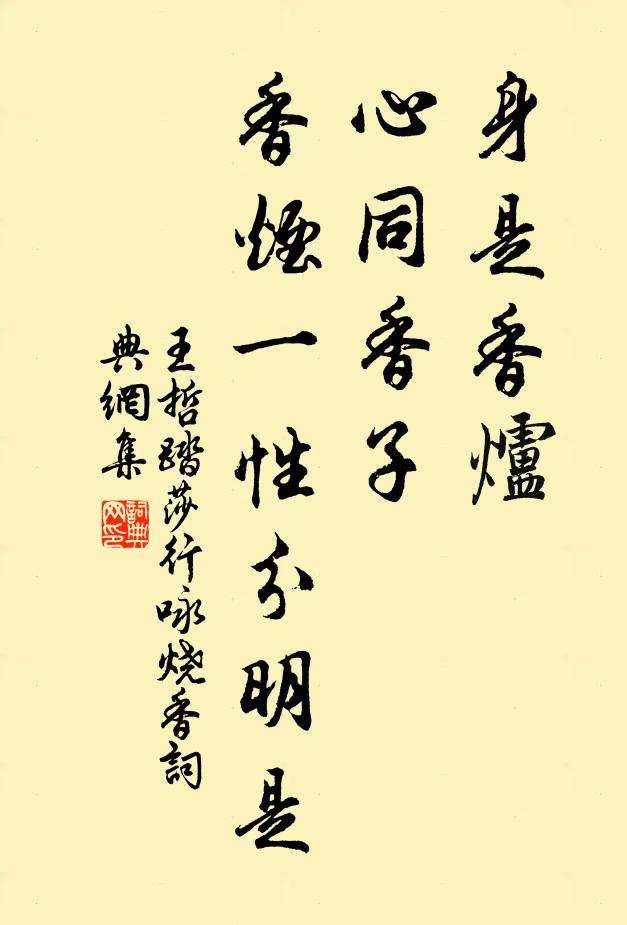 身是香爐
心同香子
香煙一性分明是
王哲踏莎行咏烧香詞
典網集
詞典网印